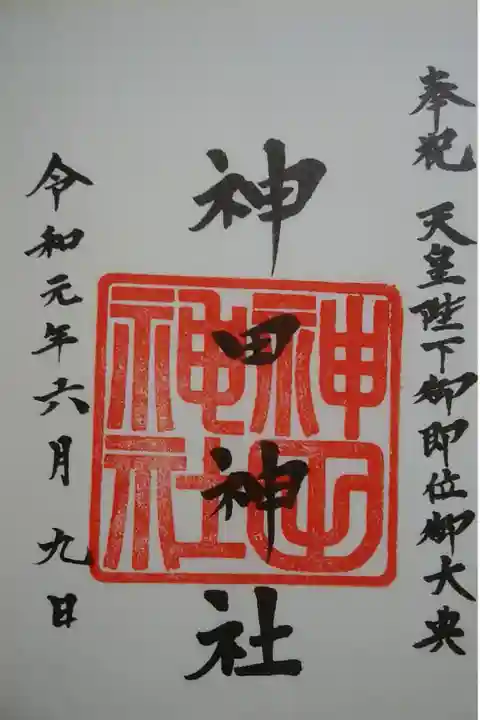 奉祝 天皇陛下御即位御大典
神田神社
神田
神社
令和元年六月九日